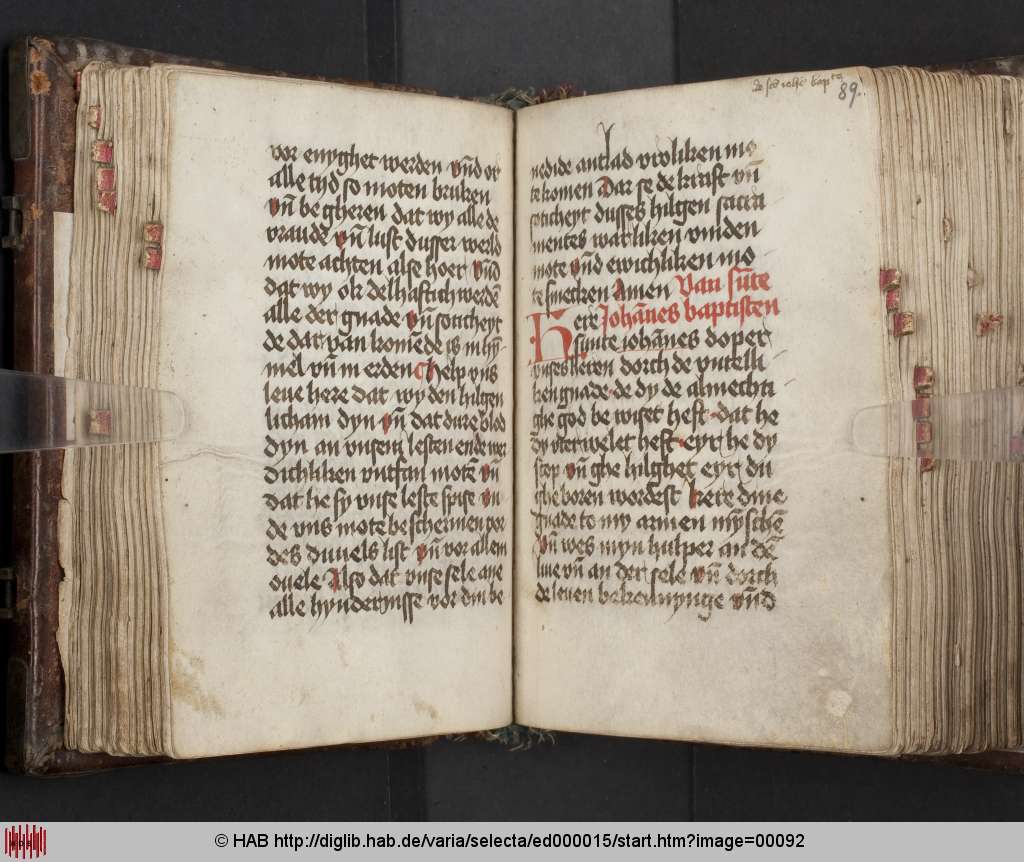 vor enyghet werden vn̄d or
alle tyd so moten bruken
vn̄ be gheren dat wy alle de
vraude vn̄ lust dusser werld
mote achten alse hoer vn̄d
dat wy ok delhaftich werdē
alle der gnade vn̄ soticheyt
de dar van komēde is in hȳ-
mel vn̄ in erden Help vns
leue here dat wy den hilgen
licham dyn vn̄ dat dure blod
dyn an vnsem lesten ende wer
dichliken vntfan motē vn̄
dat he sy vnse leste spise vn̄
de vns mote beschermen vor
des duuels list vn̄ vor allem
ouele Also dat vnse sele ane
alle hyndernisse vor din be
89.
nedide antlad vroliken mo
te komen Dar se de kraft vn̄
soticheyt dusses hilgen sacra
mentes warliken vinden
mote vn̄d ewichliken mo
te smecken Amen Van sūte
Johānes baptisten
Here
sunte johānes doper
vnses heren dorch de vntelli
ken gnade de dy de almechti
ghe god be wiset heft dat he
dy vterwelet heft eyr he dy
scop vn̄ ghe hilghet eyr du
ghe boren wordest kere dine
gnade to my armen mȳschē
vn̄ wes myn hulper an dē
liue vn̄ an der sele vn̄ dorch
de leuen bekennynge vn̄d
© HAB http://diglib.hab.de/varia/selecta/ed000015/start.htm?image=00092